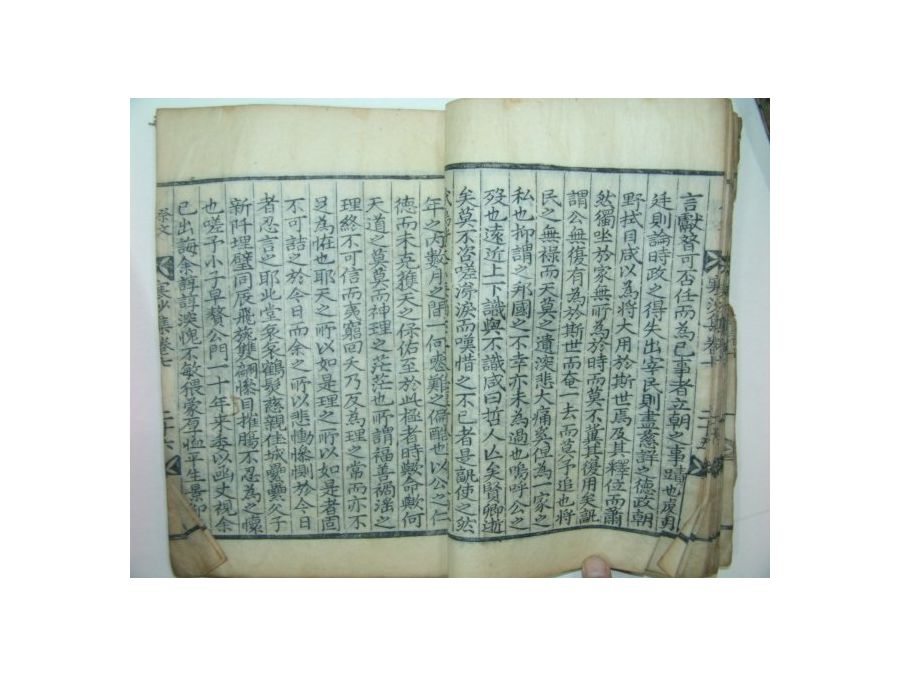 言獻替可否任而為已事者立朝之事蹟也處勇
廷則論時政之得失出宰民則盡慈諄之德政朝
野拭目咸以為將大用於斯世焉及其釋位而蕭
然獨坐於家無所為於時而莫不冀其復用矣詎
謂公無復有為於斯世而奄一去而莫予追也將
民之無祿而天莫之遺深悲大痛奚但為一家之
私也抑謂之邦國之不幸亦未為過也嗚呼公之
歿也遠近上下識與不識咸曰哲人亡矣賢卿逝
矣莫不咨嗟涕淚而嘆惜之不已者是孰使之然
年之內數月之間一何慼難之偏酷也以公之仁
德而未克獲天之保佑至於此極者時歟命歟何
天道之莫莫而神理之茫茫也所謂福善禍淫之
理終不可信而夷窮回夭乃反為理之常而亦不
足為恠也耶天之所以如是理之所以如是者固
不可詰之於今日而余之所以悲慟慘惻於今日
者忍言之耶此堂哀哀鶴髮慈親佳城纍纍父子
新阡埋璧同辰飛旐雙翩慘目摧腸不忍為之懷
也嗟予小子早贅公門一十年來忝以函丈視余
已出誨余諄諄淟愧不敏猥蒙厚恤平生景仰
祭文
寒沙集卷七
二十六